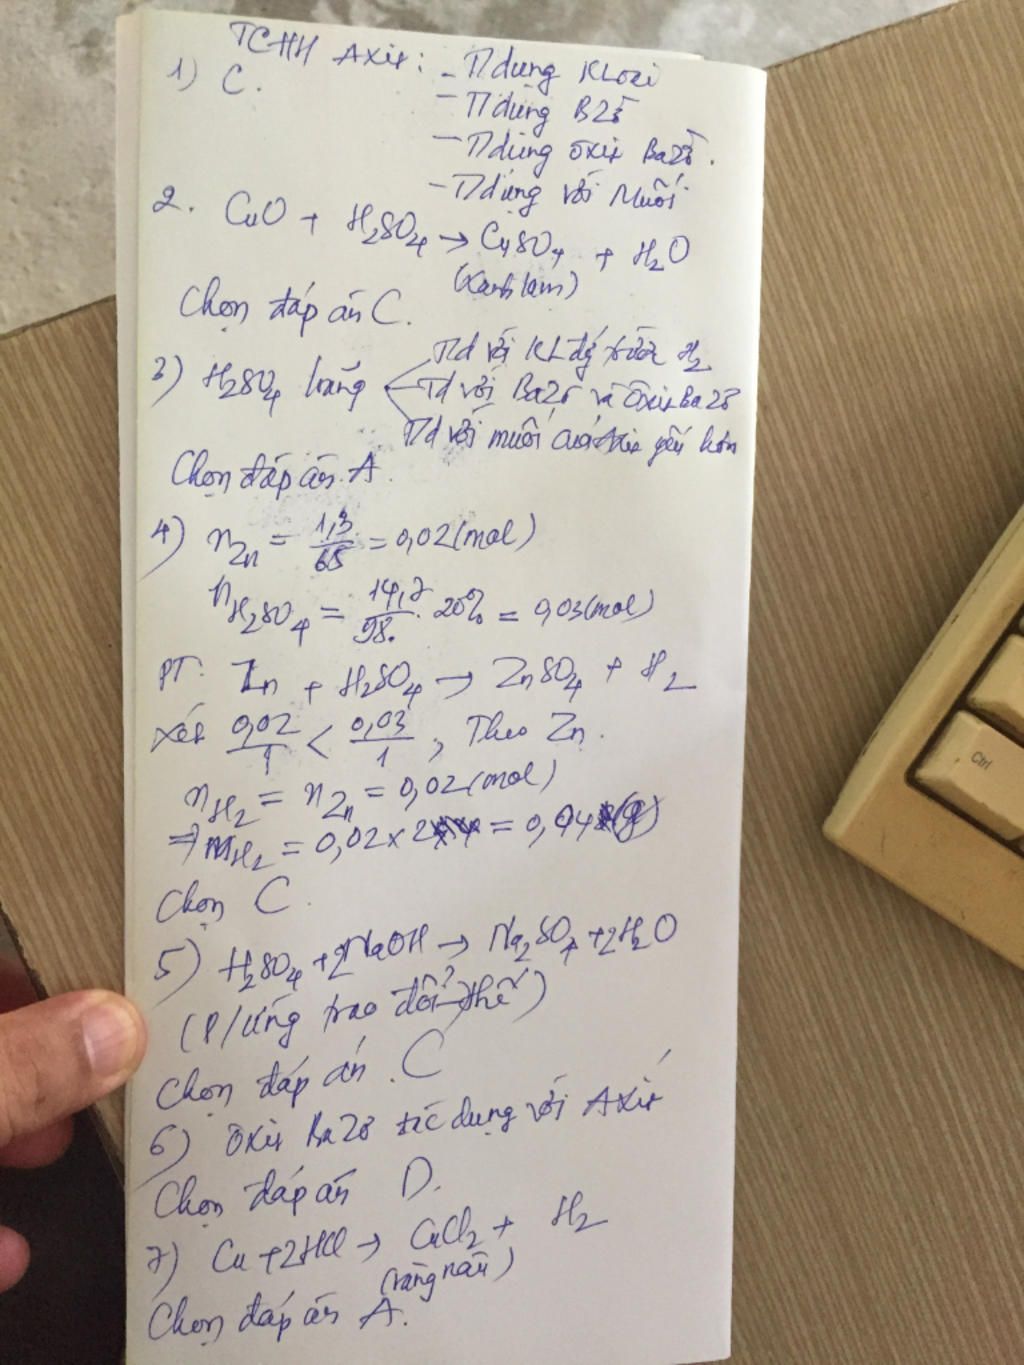 TCHH Axit: - T/dụng KLoại
1) C.
- T/dụng BZơ
- T/dụng Oxit Bazơ.
- T/dụng với Muối
2. CuO + H₂SO₄ → CuSO₄ + H₂O
(Xanh lam)
Chọn đáp án C.
3) H₂SO₄ loãng
T/d với KL đứ trước H₂
Td với BaZơ và Oxit BaZơ
T/d với muối của Axit yếu hơn
Chọn đáp án. A
4) nZn = 1,3/65 = 0,02 (mol)
nH₂SO₄ = 14,7/98. 20% = 0,03 (mol)
PT: Zn + H₂SO₄ → ZnSO₄ + H₂
Xét 0,02/1 < 0,03/1, Theo Zn.
nH₂ = nZn = 0,02 (mol)
⇒ mH₂ = 0,02 x 2 = 0,04 (g)
Chọn C.
5) H₂SO₄ + 2NaOH → Na₂SO₄ + 2H₂O
(P/ứng trao đổi, thế)
Chọn đáp án. C
6) Oxit BaZơ tác dụng với Axit
Chọn đáp án D.
7) Cu + 2HCl → CuCl₂ + H₂
(vàng nâu)
Chọn đáp án A.